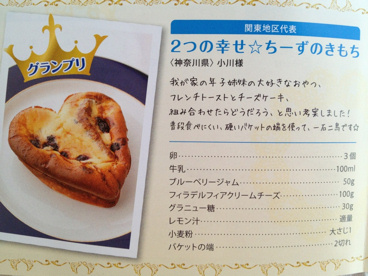 グランプリ
関東地区代表
2つの幸せ☆ちーずのきもち
〈神奈川県〉小川様
我が家の年子姉妹の大好きなおやつ、
フレンチトーストとチーズケーキ、
組み合わせたらどうだろう、と思い考案しました!
普段食べにくい、硬いバケットの端を使って、一石二鳥です☆
卵 3個
牛乳 100ml
ブルーベリージャム 50g
フィラデルフィアクリームチーズ 100g
グラニュー糖 30g
レモン汁 適量
小麦粉 大さじ1
バケットの端 2切れ